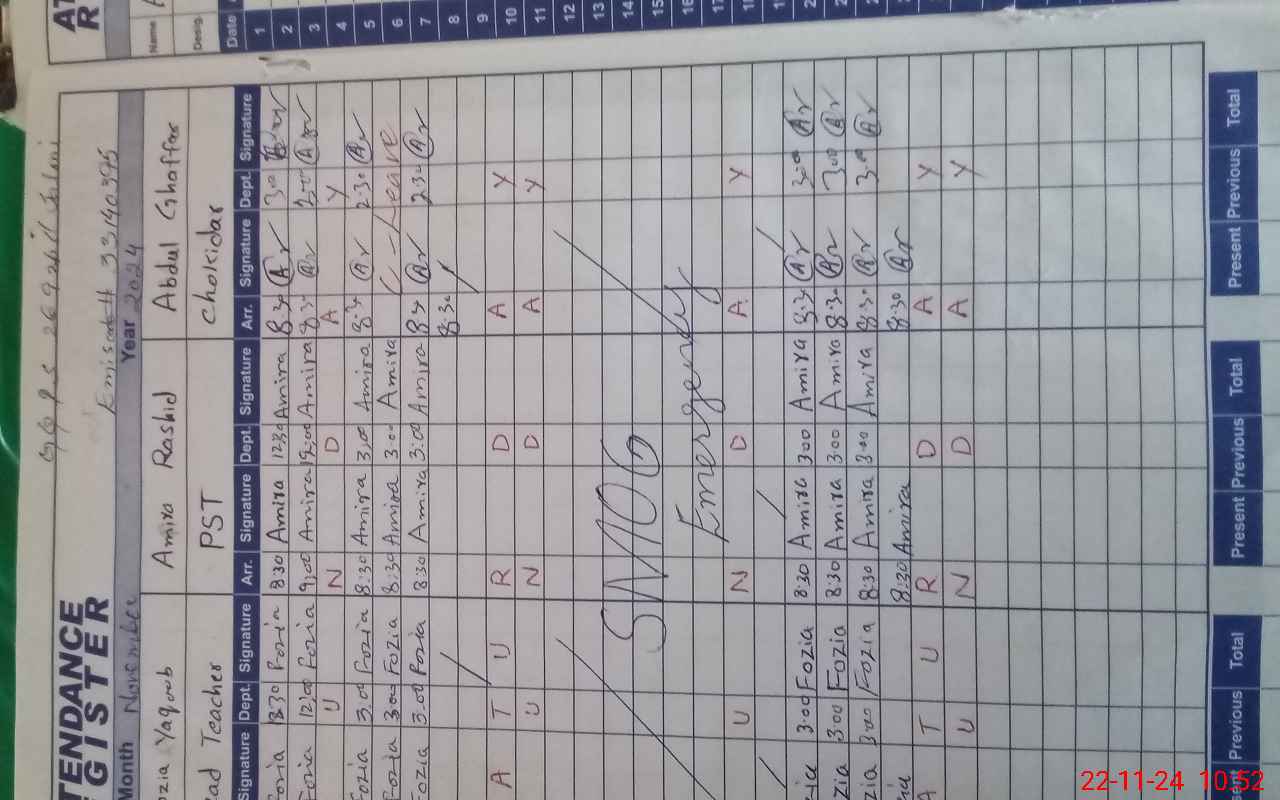 TENDANCE
GISTER
Month November Year 2024
ozia Yaqoob Amira Rashid Abdul Ghaffar
ad Teacher PST Chokidar
Signature Dept. Signature Arr. Signature Dept. Signature Arr. Signature Dept. Signature
Fozia 8:30 Amira 12:30 Amira 8:30 Ar 3:00
Fozia 12:00 Fozia 9:00 Amira 12:00 Amira 8:30 Ar
U N D A Y
Fozia 3:00 Fozia 8:30 Amira 3:00 Amira 8:30 Ar 2:30 Ar
Fozia 3:00 Fozia 8:30 Amira 3:00 Amira Leave
Fozia 3:00 Fozia 8:30 Amira 3:00 Amira 8:30 Ar 2:30 Ar
8:30
A T U R D A Y
U N D A Y
SMOG
Emergency
U N D A Y
3:00 Fozia 8:30 Amira 3:00 Amira 8:30 Ar 3:00 Ar
zia 3:00 Fozia 8:30 Amira 3:00 Amira 8:30 Ar 3:00 Ar
zia 3:00 Fozia 8:30 Amira 3:00 Amira 8:30 Ar 3:00 Ar
8:30 Amira 8:30 Ar
A T U R D A Y
U N D A Y
Previous Total Present Previous Total Present Previous Total
AT
R
Name
Desig.
Date 1 2 3 4 5 6 7 8 9 10 11 12 13 14 15 16 17
22-11-24 10:52